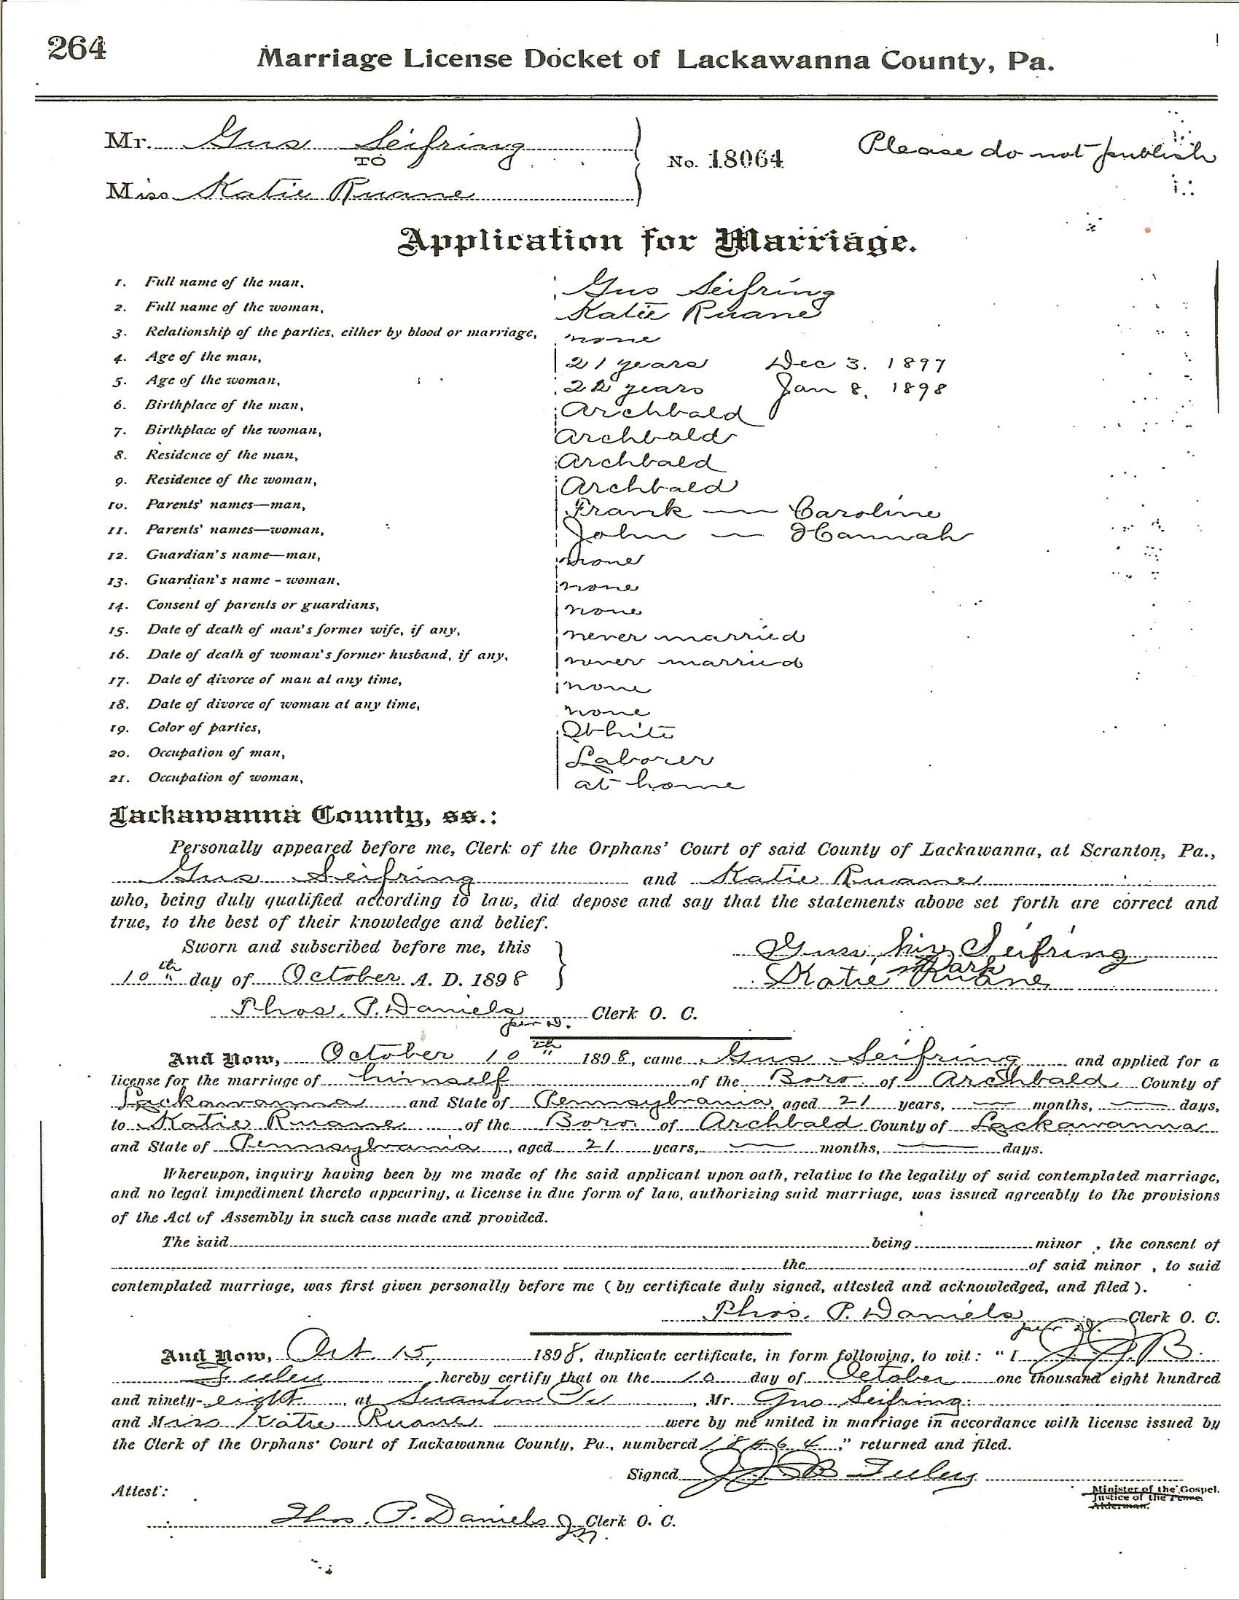 264
Marriage License Docket of Lackawanna County, Pa.
Mr. Gus Seifring
TO
No. 18064
Please do not publish
Miss Katie Ruane
Application for Marriage.
1. Full name of the man, Gus Seifring
2. Full name of the woman, Katie Ruane
3. Relationship of the parties, either by blood or marriage, none
4. Age of the man, 21 years Dec 3. 1897
5. Age of the woman, 22 years Jan 8, 1898
6. Birthplace of the man, Archbald
7. Birthplace of the woman, Archbald
8. Residence of the man, Archbald
9. Residence of the woman, Archbald
10. Parents' names—man, Frank — Caroline
11. Parents' names—woman, John — Hannah
12. Guardian's name—man, none
13. Guardian's name - woman, none
14. Consent of parents or guardians, none
15. Date of death of man's former wife, if any, never married
16. Date of death of woman's former husband, if any, never married
17. Date of divorce of man at any time, none
18. Date of divorce of woman at any time, none
19. Color of parties, White
20. Occupation of man, Laborer
21. Occupation of woman, at home
Lackawanna County, ss.:
Personally appeared before me, Clerk of the Orphans' Court of said County of Lackawanna, at Scranton, Pa.,
Gus Seifring and Katie Ruane
who, being duly qualified according to law, did depose and say that the statements above set forth are correct and
true, to the best of their knowledge and belief.
Sworn and subscribed before me, this
10th day of October A. D. 1898
Gus his Seifring
mark
Katie Ruane
Thos. P. Daniels Clerk O. C.
per D.
And Now, October 10th 1898, came Gus Seifring and applied for a
license for the marriage of himself of the Boro of Archbald County of
Lackawanna and State of Pennsylvania aged 21 years, — months, — days,
to Katie Ruane of the Boro. of Archbald County of Lackawanna
and State of Pennsylvania, aged 21 years, — months, — days.
Whereupon, inquiry having been by me made of the said applicant upon oath, relative to the legality of said contemplated marriage,
and no legal impediment thereto appearing, a license in due form of law, authorizing said marriage, was issued agreeably to the provisions
of the Act of Assembly in such case made and provided.
The said being minor , the consent of
the of said minor , to said
contemplated marriage, was first given personally before me (by certificate duly signed, attested and acknowledged, and filed).
Thos. P. Daniels Clerk O. C.
per D.
And Now, Oct. 15, 1898, duplicate certificate, in form following, to wit: "I J.J.B.
Feeley hereby certify that on the 10 day of October one thousand eight hundred
and ninety-eight at Scranton Pa, Mr. Gus Seifring
and Miss Katie Ruane were by me united in marriage in accordance with license issued by
the Clerk of the Orphans' Court of Lackawanna County, Pa., numbered 18064," returned and filed.
Signed J.J.B. Feeley
Minister of the Gospel.
Justice of the Peace.
Alderman.
Attest:
Thos. P. Daniels Clerk O. C.